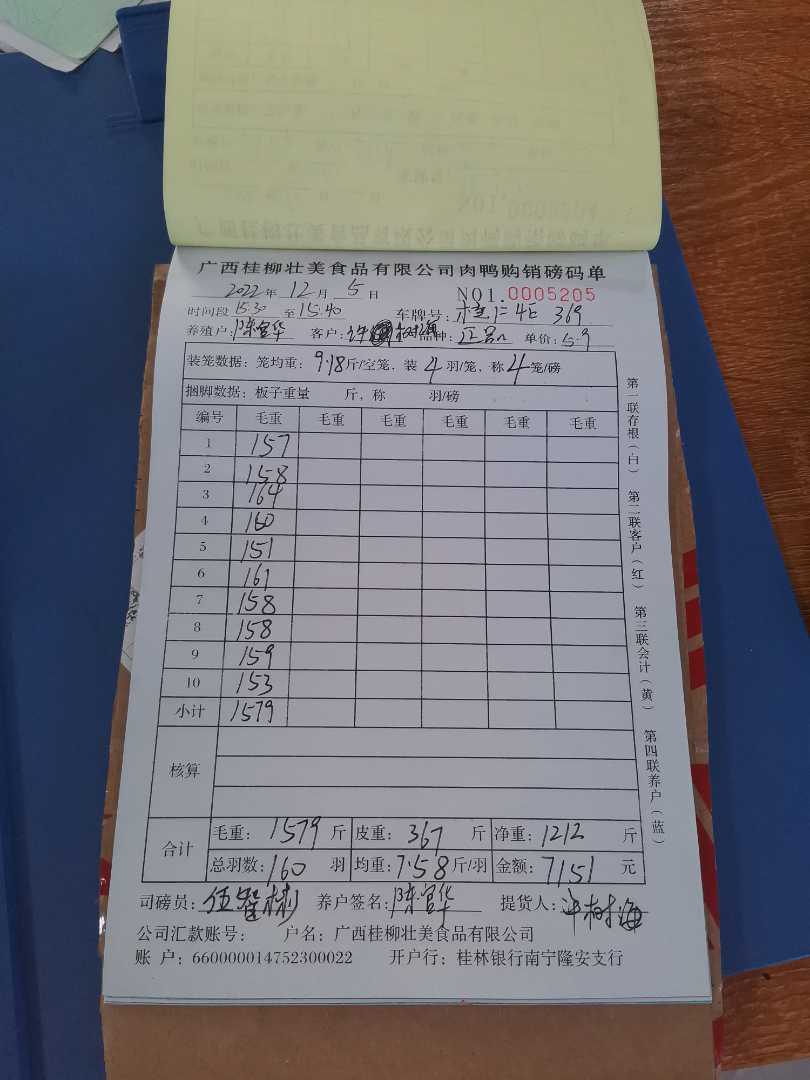 广西桂柳壮美食品有限公司肉鸭购销磅码单
2022年 12月 5日 NO1.0005205
时间段 15:30 至 15:40 车牌号: 369
养殖户: 陈宣华 客户: 品种: 正品 单价: 5.9
装笼数据: 笼均重: 9.18斤/空笼, 装 4 羽/笼, 称 4 笼/磅
捆脚数据: 板子重量 斤, 称 羽/磅
编号 毛重 毛重 毛重 毛重 毛重 毛重
1 157
2 158
3 164
4 160
5 151
6 161
7 158
8 158
9 159
10 153
小计 1579
核算
合计 毛重: 1579 斤 皮重: 367 斤 净重: 1212 斤
总羽数: 160 羽 均重: 7.58 斤/羽 金额: 7151 元
司磅员: 伍 养户签名: 陈宣华 提货人: 树海
公司汇款账号: 户名: 广西桂柳壮美食品有限公司
账 户: 660000014752300022 开户行: 桂林银行南宁隆安支行
第一联存根(白) 第二联客户(红) 第三联会计(黄) 第四联养户(蓝)